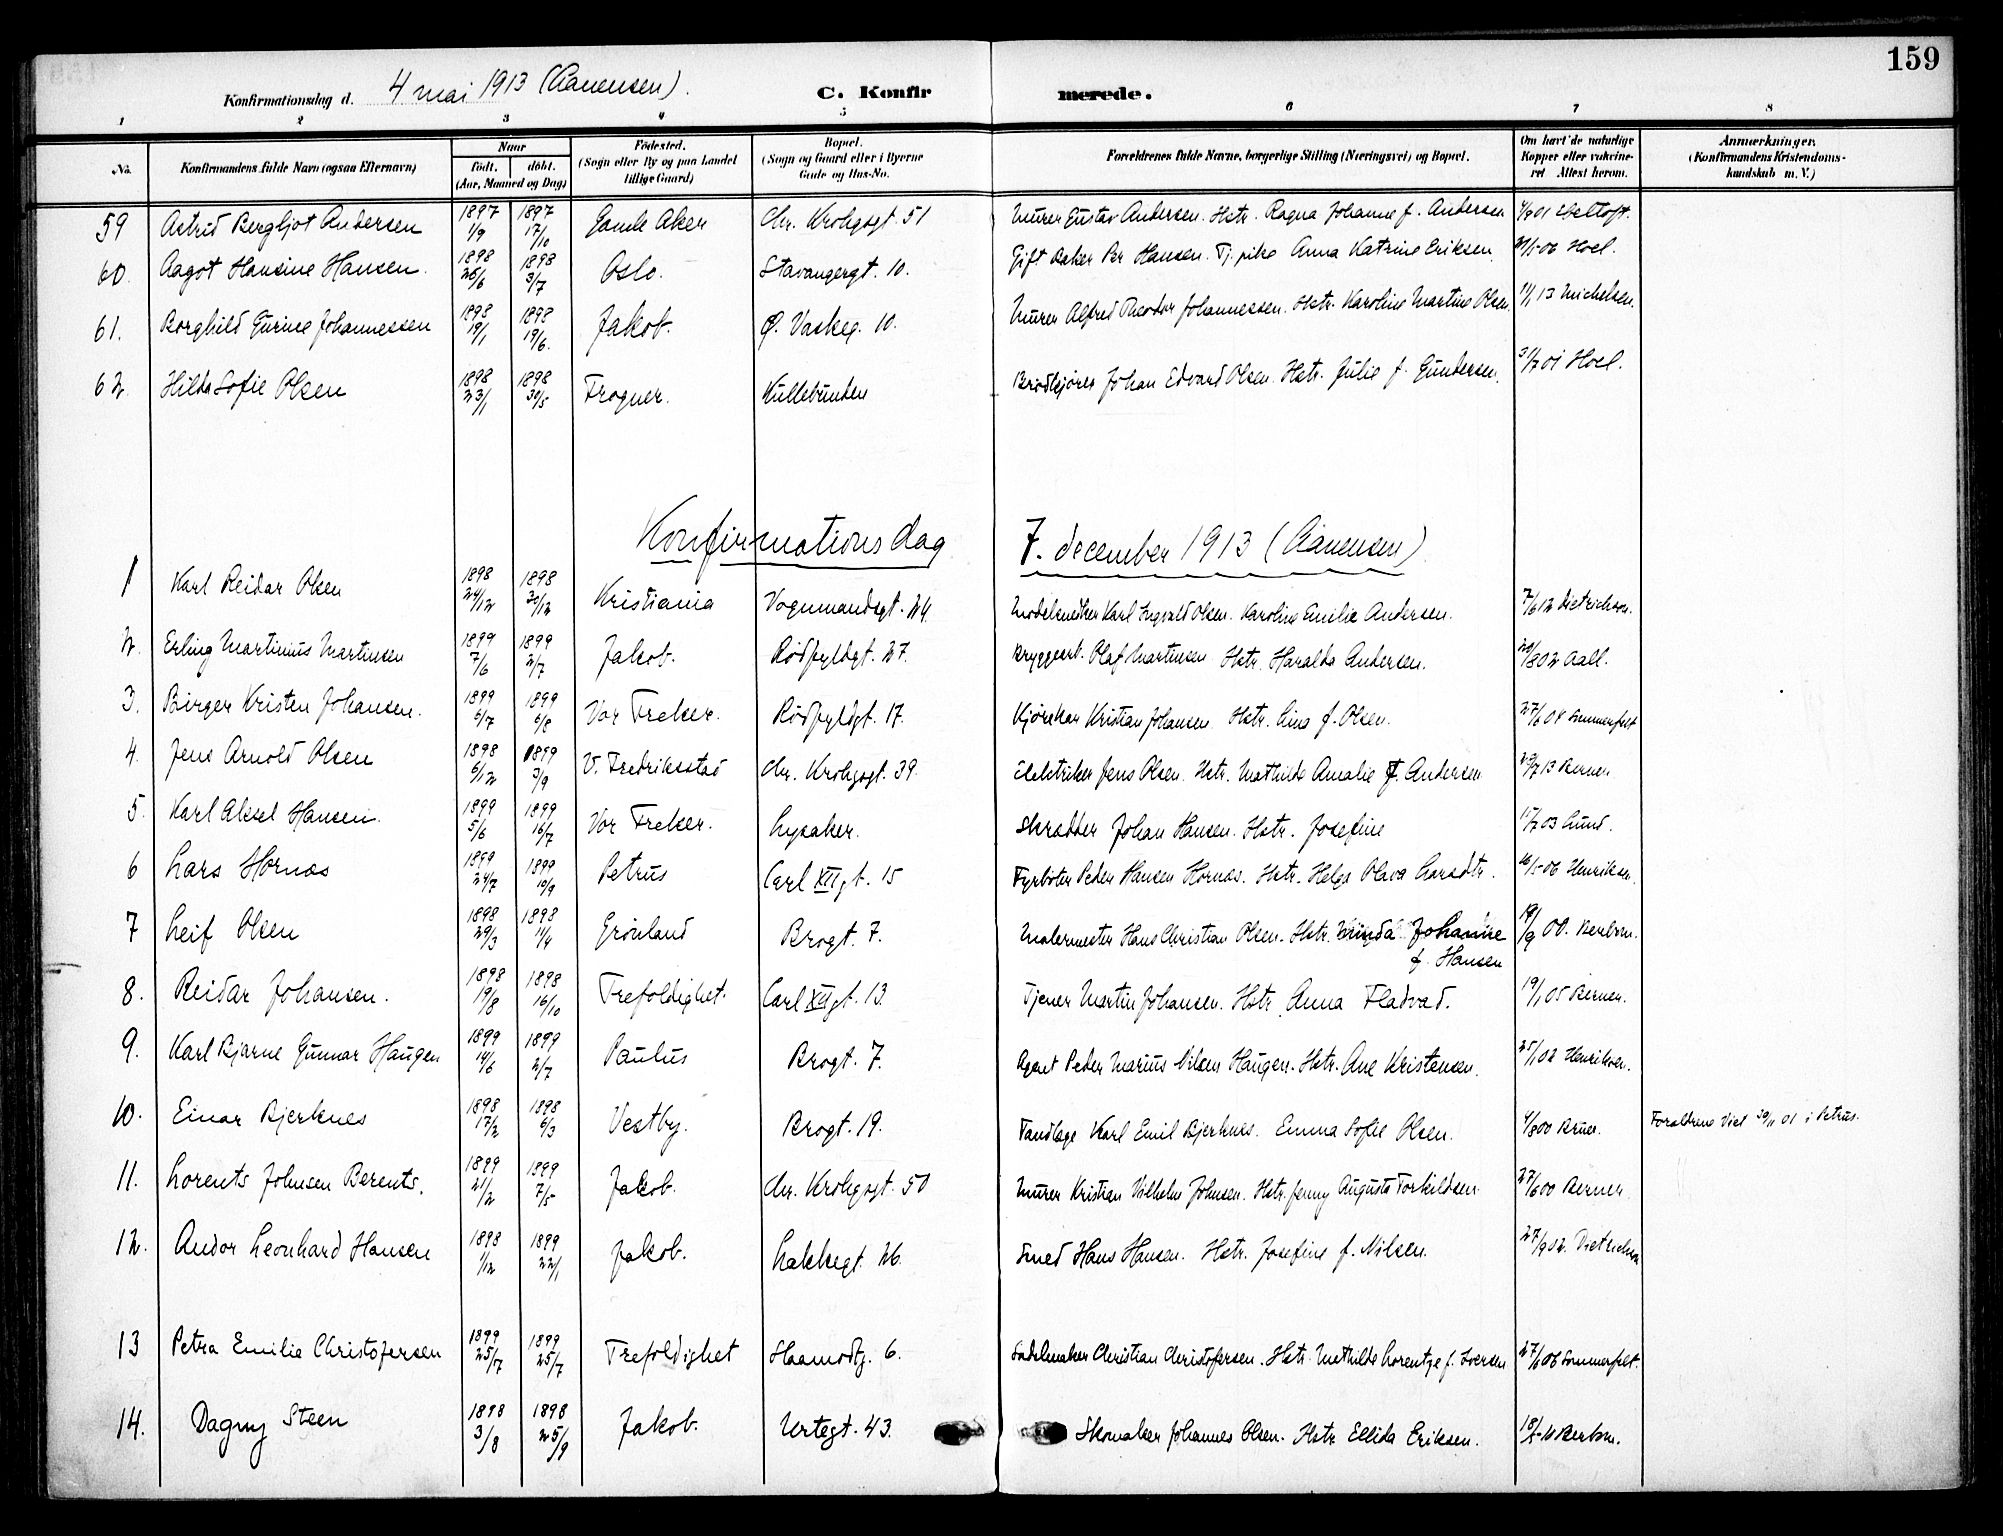 159
Konfirmationsdag d. 4 mai 1913 (Aanensen).
C. Konfirmerede.
1 2 3 4 5 6 7 8
No. Konfirmandens fulde Navn (ogsaa Efternavn) Naar født. døbt. (Aar, Maaned og Dag) Fødested. (Sogn eller By og paa Landet tillige Gaard) Bopæl. (Sogn og Gaard eller i Byerne Gade og Hus-No. Forældrenes fulde Navne, borgerlige Stilling (Næringsvei) og Bopæl. Om havt de naturlige Kopper eller vaksineret Attest herom. Anmærkninger. (Konfirmandens Kristendomskundskab m. V.)
59 Astrid Bergljot Andersen 1897 1/9 1897 17/10 Gamle Aker Chr. Krohgsgt. 51 Murer Gustav Andersen. Hstr. Ragna Johanne f. Andersen 4/9 01 Ebeltoft.
60. Aagot Hansine Hansen. 1898 26/6 1898 3/7 Oslo. Stavangergt. 10. Gift Baker Per Hansen. Tj. pike Anna Katrine Eriksen. 21/5 06 Hoel.
61. Borghild Gurine Johannessen 1898 19/1 1898 19/6. Jakob. Ø. Vaskeg. 10. Murer Alfred Theodor Johannessen. Hstr. Karoline Martine Olsen. 11/1 13 Michelsen.
62. Hilda Sofie Olsen 1898 23/1 1898 30/5 Frogner. Kullebunden Brødkjører Johan Edvard Olsen. Hstr. Julie f. Gundersen. 31/7 01 Hoel.
Konfirmationsdag 7. december 1913 (Aanensen)
1 Karl Reidar Olsen 1898 24/12 1898 30/12 Kristiania Vognmandsgt. 24. Modelsnedker Karl Ingvald Olsen. Karoline Emilie Andersen. 7/6 12 Dietrichson.
2. Erling Martinius Martinsen 1899 7/6 1899 2/7 Jakob. Rødfyldgt. 27. Bryggearb. Olaf Martinsen Hstr. Haralda Andersen. 20/8 02 Aall.
3. Birger Kristen Johansen. 1899 6/7 1899 6/8 Vor Frelser. Rødfyldgt. 17. Kjørekar Kristian Johansen. Hstr. Lina f. Olsen. 27/6 04 Sommerfelt
4. Jens Arnold Olsen 1898 6/12 1899 3/9 V. Fredriksstad Chr. Krohgsgt. 39. Elektriker Jens Olsen. Hstr. Mathilde Amalie f. Andersen 23/7 13 Berner.
5. Karl Aksel Hansen. 1899 5/6 1899 16/7 Vor Frelser. Lysaker. Skrædder Johan Hansen. Hstr. Josefine 17/7 03 Lund.
6 Lars Hornæs 1899 24/7 1899 10/9 Petrus Carl XII gt. 15 Fyrbøter Peder Hansen Hornæs. Hstr. Helga Olava Larsdtr. 16/5 06 Henriksen.
7 Leif Olsen 1898 29/3 1898 11/4 Grønland Brogt. 7. Malermester Hans Christian Olsen. Hstr. Johanne
f. Hansen 19/9 00. Berbom.
8. Reidar Johansen. 1898 19/8 1898 16/10 Trefoldighet. Carl XII gt. 13. Tjener Martin Johansen. Hstr. Anna Fladvad. 19/1 05 Berner.
9. Karl Bjarne Gunnar Haugen 1899 14/6 1899 2/7 Paulus Brogt. 7. Agent Peder Marius Nilsen Haugen. Hstr. Ane Kristensen. 25/1 02 Henriksen.
10. Einar Bjerknes 1898 17/2 1898 6/3 Vestby. Brogt. 19. Tandlæge Karl Emil Bjerknes. Emma Sofie Olsen. 4/8 00 Bruer. Forældrene viet 30/11 01 i Petrus.
11. Lorents Johnsen Berents. 1899 21/2 1899 7/5 Jakob. Chr. Krohgsgt. 50 Murer Kristian Vilhelm Johnsen. Hstr. Jenny Augusta Torkildsen. 27/6 00 Berner
12. Andor Leonhard Hansen 1898 1/12 1899 22/1 Jakob. Lakkegt. 26. Smed Hans Hansen. Hstr. Josefine f. Nilsen. 27/9 02. Dietrichson
13 Petra Emilie Christofersen 1899 25/7 1899 25/7 Trefoldighet Haamodtg. 6. Sadelmaker Christian Christofersen. Hstr. Mathilde Lorentze f. Iversen 27/6 06 Sommerfelt.
14. Dagny Steen 1898 3/8 1898 25/9 Jakob. Urtegt. 43. Skomaker Johannes Olsen. Hstr. Ellida Eriksen. 18/5 10 Berbom.